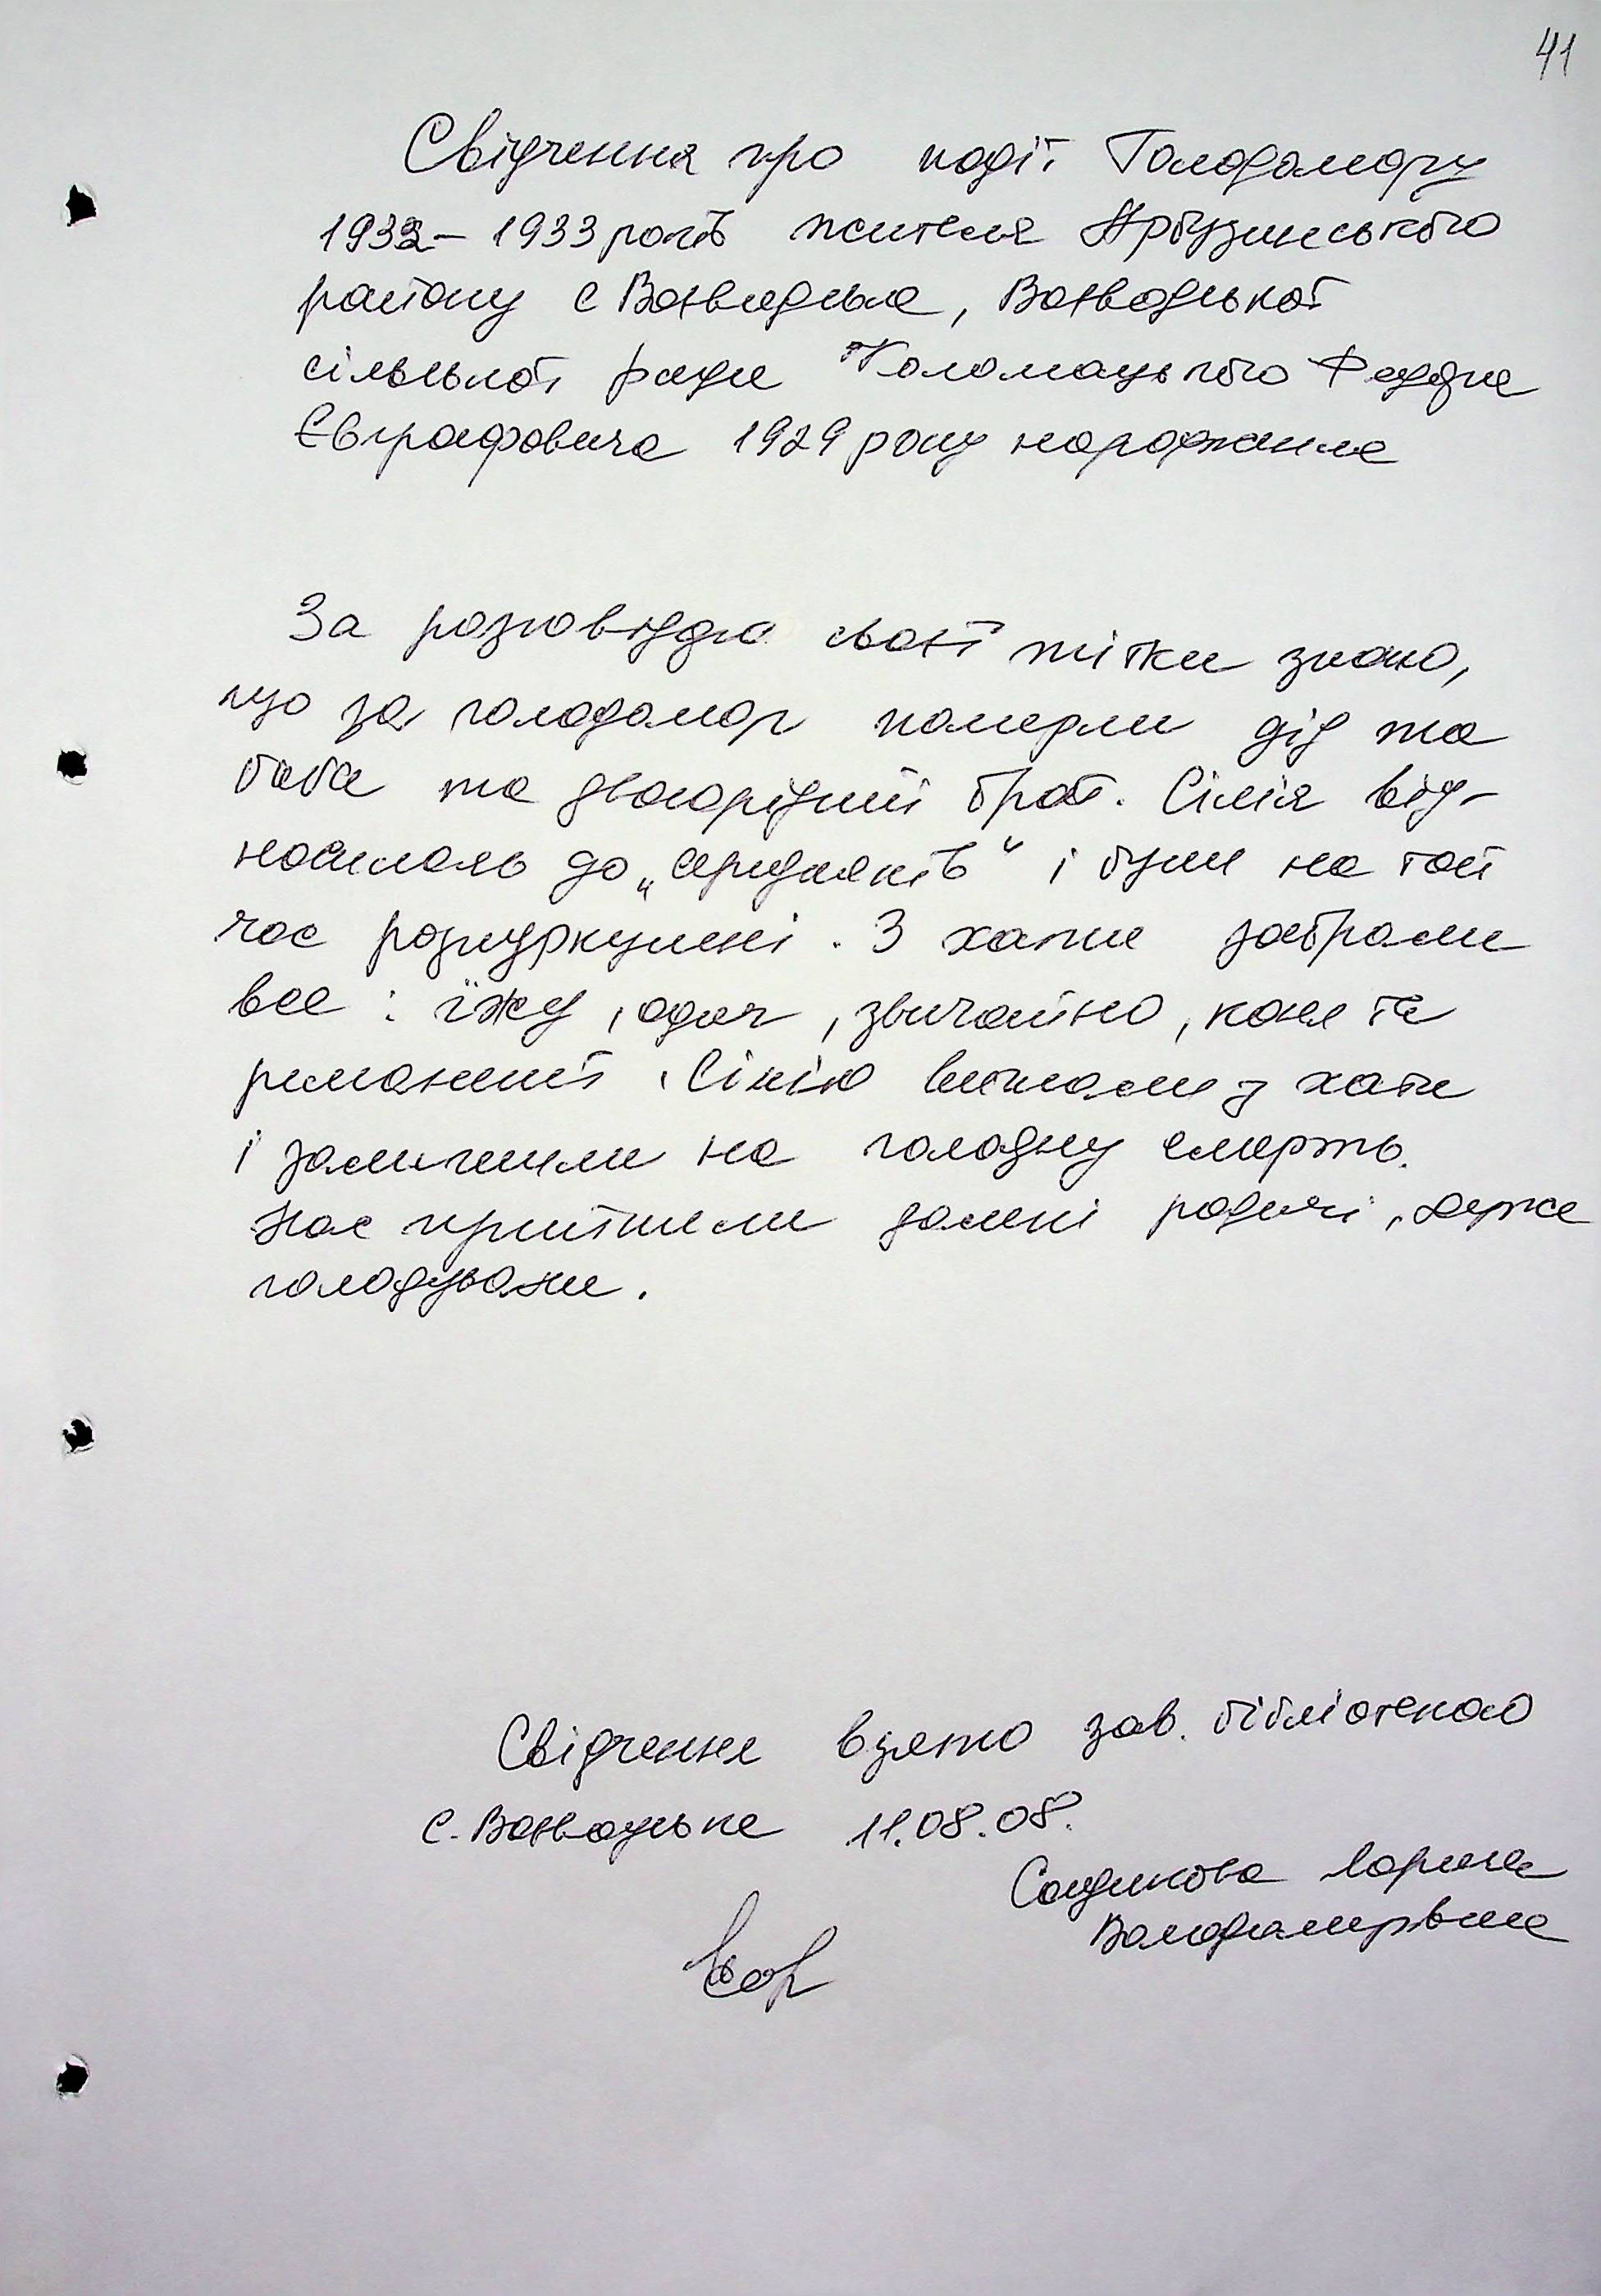 41
Свідчення про події Голодомору
1932 – 1933 років жителя Арбузинського
району с Воєводське, Воєводської
сільської ради Коломацького Федора
Євграфовича 1929 року народження
За розповіддю своєї тітки знаю,
що за голодомор померли дід та
баба та двоюрідний брат. Сім'я від-
носилась до „середняків“ і були на той
час розкуркулені. З хати забрали
все: їжу, одяг, звичайно, коня та
реманент. Сім'ю вигнали з хати
і залишили на голодну смерть.
Нас прийняли далекі родичі, дуже
голодували.
Свідчення взято зав. бібліотекою
с. Воєводське 11.08.08.
Лариса
Володимирівна